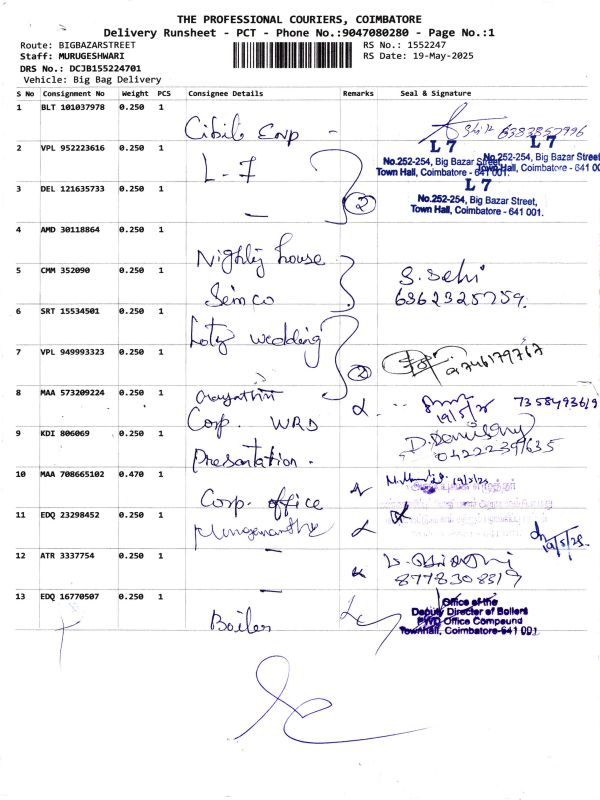 THE PROFESSIONAL COURIERS, COIMBATORE
Delivery Runsheet - PCT - Phone No.:9047080280 - Page No.:1
Route: BIGBAZARSTREET
RS No.: 1552247
Staff: MURUGESHWARI
RS Date: 19-May-2025
DRS No.: DCJB155224701
Vehicle: Big Bag Delivery
S No Consignment No Weight PCS Consignee Details Remarks Seal & Signature
1 BLT 101037978 0.250 1
Corp - 6383857996
2 VPL 952223616 0.250 1 L-7
L 7
No.252-254, Big Bazar Street,
Town Hall, Coimbatore - 641 001.
No.252-254, Big Bazar Street,
Town Hall, Coimbatore - 641 00
3 DEL 121635733 0.250 1 — 2
L 7
No.252-254, Big Bazar Street,
Town Hall, Coimbatore - 641 001.
4 AMD 30118864 0.250 1
Nighty house
5 CMM 352090 0.250 1 Semco
6362325759.
6 SRT 15534501 0.250 1
wedding
7 VPL 949993323 0.250 1 2
9746179767
8 MAA 573209224 0.250 1
19/5/25 7358493619
Corp. WRD
9 KDI 806069 0.250 1
04222391635
Presentation.
10 MAA 708665102 0.470 1
19/5/25
Corp. office
11 EDQ 23298452 0.250 1
19/5/25.
12 ATR 3337754 0.250 1 —
8778308319
13 EDQ 16770507 0.250 1 —
Boiler
Office of the
Deputy Director of Boilers
PWD Office Compound
Townhall, Coimbatore-641 001